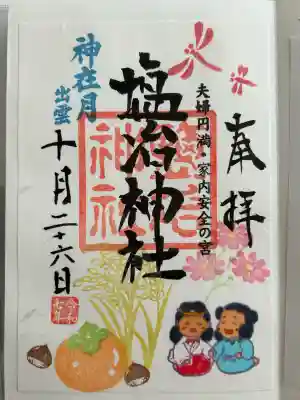 奉拝
夫婦円満・家内安全の宮
塩冶神社
神在月
出雲
十月二十六日
令和七年